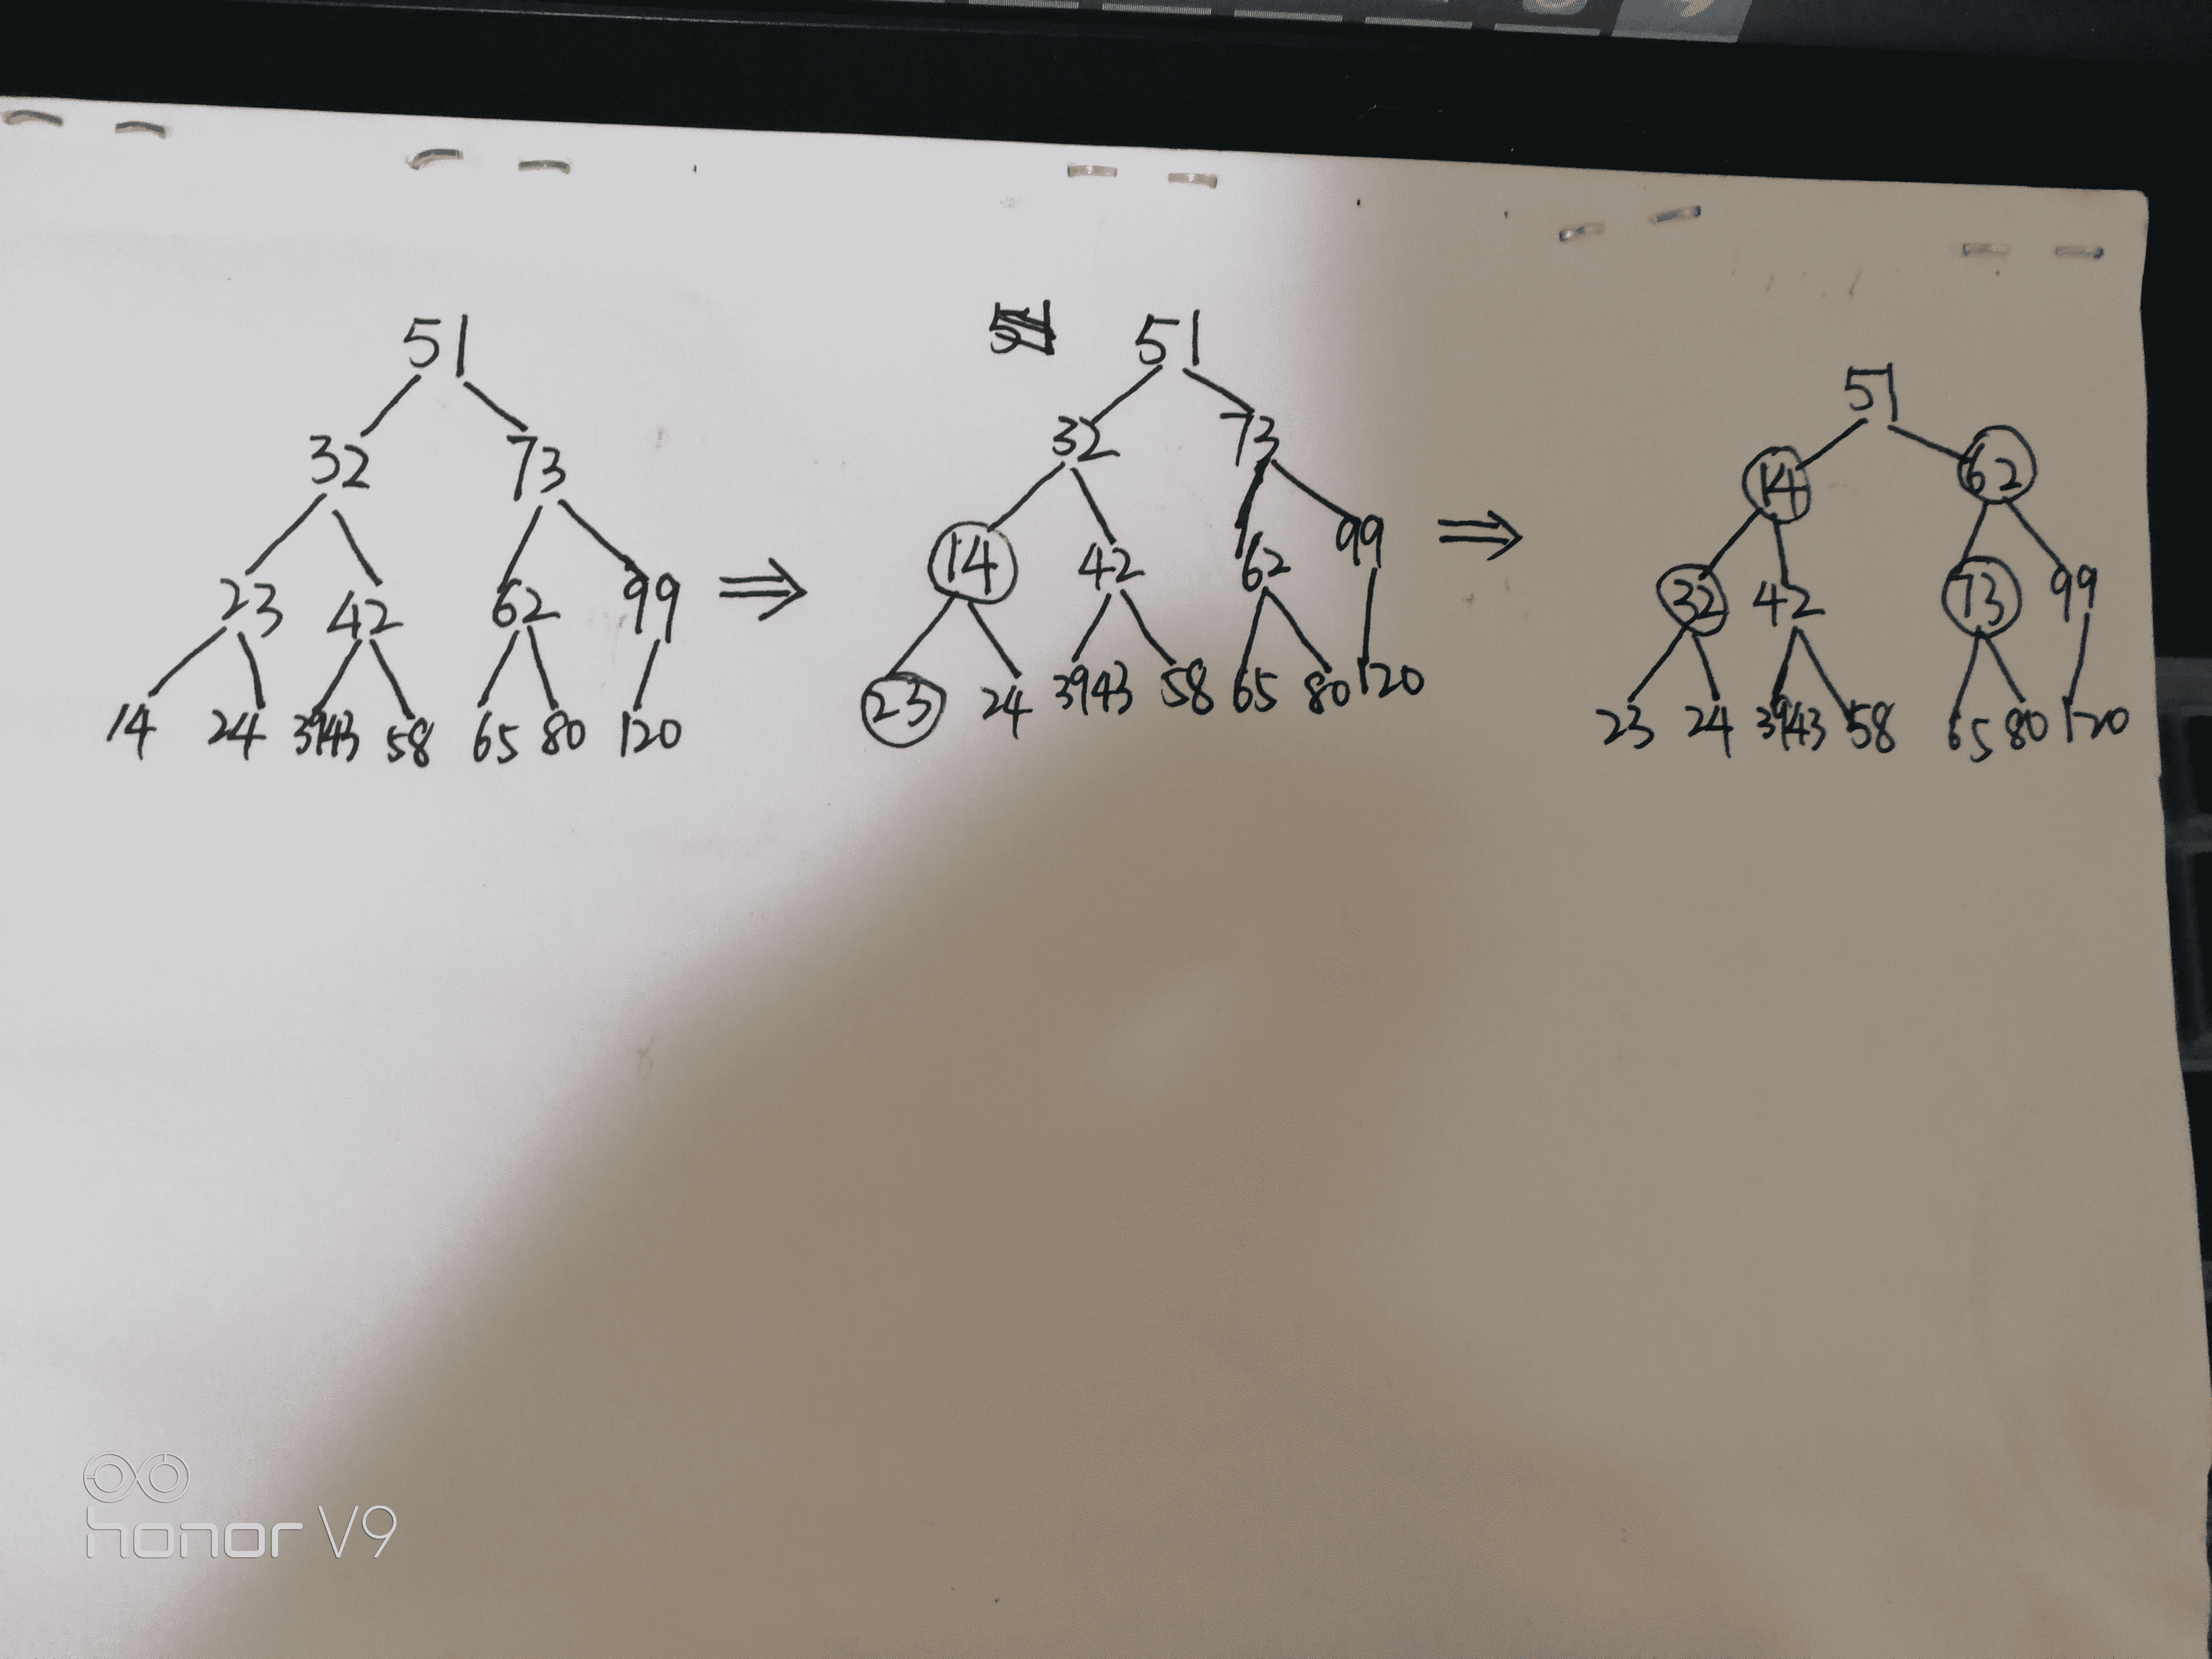 51
32 73
23 42 62 99
14 24 3943 58 65 80 120
⇒
51
32 73
14 42 62 99
23 24 3943 58 65 80 120
⇒
51
14 62
32 42 73 99
23 24 3943 58 65 80 120
honor V9